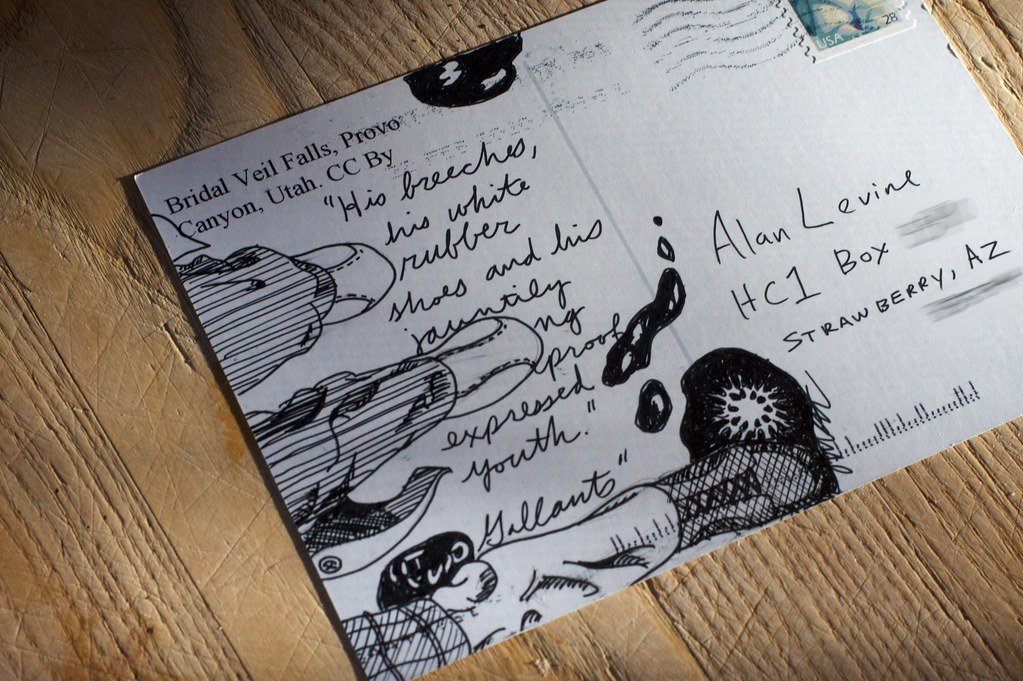 Bridal Veil Falls, Provo
Canyon, Utah. CC By
"His breeches,
his white
rubber
shoes and his
jauntily
ng
proof
expressed
youth."
Gallants"
USA 28
Alan Levine
HC1 Box
STRAWBERRY, AZ